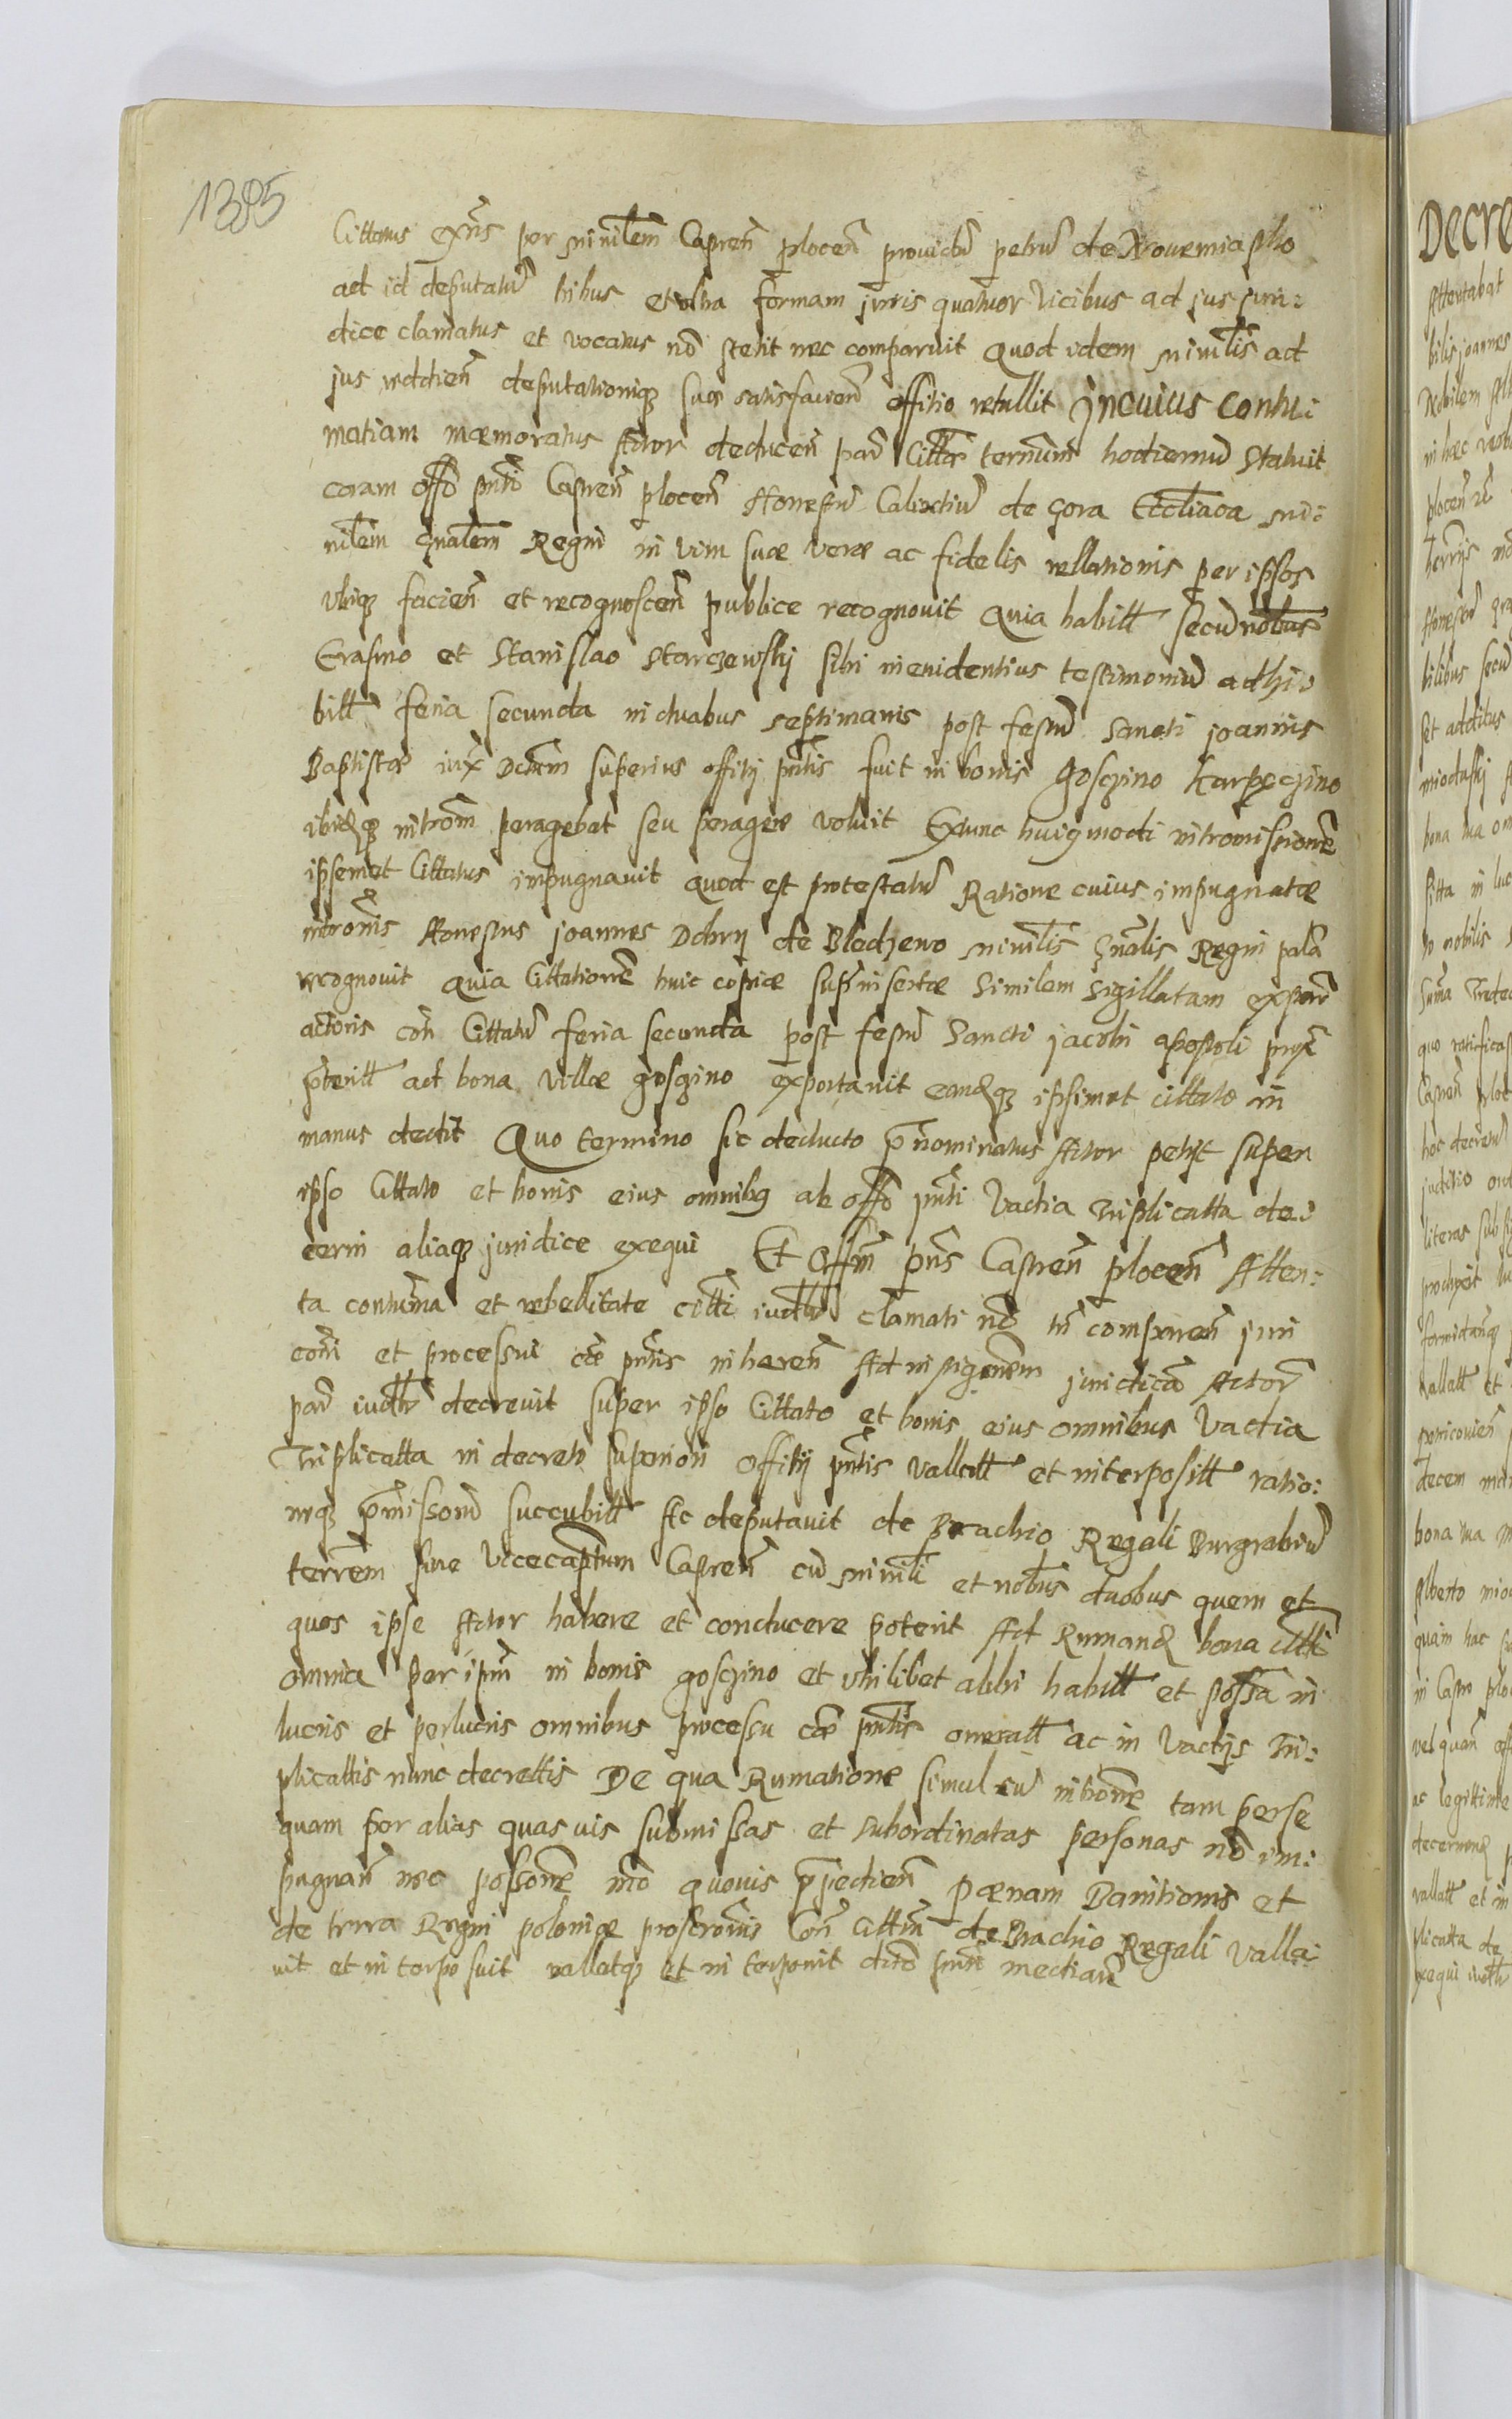 1385
Cittatus exn̄s per ministlem Castren̄ plocen̄ providū petrū de Novemiasto
ad id deputatū tribus et ultra formam juris quatuor vicibus ad jus juri:
dice clamatus et vocatus nō stetit nec comparuit Quod idem ministlis ad
jus reddien̄ deputationiq3 suae satisfacien̄ offitio retullit Jncuius contu:
matiam maemoratus Actor deducen̄ par̄ Citt̄ar terminum hodiernū Statuit
coram offō pn̄ti Castren̄ plocen̄ Honestū Calixtiū de Gora mi:
nistlem Gn̄alem Regni in vim suae verae ac fidelis rellationis per ipsos
ubiq3 facien̄ et recognoscen̄ publice recognovit Quia habitt secū nobilibus
Erasmo et Stanislao Starczewskj sibi in evidentius testimoniū adhi:
bitt feria secunda in duabus septimanis post festū Sancti joannis
Baptistae iux̄ Dctum superius offitij pn̄tis fuit in bonis Gosczino Karpeczino
ibidq3 introm̄ peragebat seu peragere voluit Extunc huigmodi intromissionē
ipsemet Cittatus impugnavit quod est protestatū Ratione cuius impugnatae
introm̄is Honestus joannes Dobry de Bledzewo ministlis Gn̄alis Regni palā
recognovit Quia Cittationē huic copiae supr̄ insertae Similem Sigillatam ex par̄
actoris con̄ Cittatū feria secunda post festū Sancti jacobi apostoli prox̄
p̄teritt ad bona villae gosczino exportavit eandq3 ipsimet cittato in
manus dedit Quo termino sic deducto p̄nominatus Actor petijt super
ipso Cittato et bonis eius omnibq ab offō pn̄ti Vadia Triplicatta de:
cerni aliaq3 juridice exequi Et Offm̄ pn̄s Castren̄ plocen̄ Atten:
ta contuma et rebellitate citti iudtr clamati nō tn̄ comparen̄ juri
com̄ et processui cāe pn̄tis inheren̄ Ad jnstigōnem juridicā Actor̄
par̄ iudtr decrevit super ipso Cittato et bonis eius omnibus Vadia
Triplicatta in decreto superiori offitij pn̄tis vallatt et interpositt ratio:
neq3 p̄missorū succubitt Ac deputavit de Brachio Regali Burgrabiū
terrēm sive Vicecaptum Castren̄ cū ministli et nobilibus duobus quem et
quos ipse Actor habere et conducere poterit Ad Rumand bona citti
omnia per ipm̄ in bonis gosczino et ubilibet alibi habitt et possa in
lucris et perlucris omnibus processu cāe pn̄tis oneratt ac in Vadijs Tri:
plicattis nunc decrettis De qua Rumatione simul cū intrōne tam per se
quam per alias quasvis submissas et subordinatas personas nō im:
pugnan̄ nec possonē mō quovis p̄pedien̄ paenam Banitionis et
de terra Regni poloniae proscr̄onis Con̄ Cittm̄ de Brachio Regali valla:
vit et interposuit vallatq3 et interponit dctō pn̄ti median̄
Decre
Attentabat
bilis joannes
Nobilem Al
in haec verb
plocen̄ re
terrijs
Honestū
bilibus secū
set additus
mioduskj
bona
sitta in
nobilis
Suma
quo ratificat
Castren̄ ploc
hoc decretū
juditio
literas sub si
vallatt et
decem mar
bona
Alberto mio
quam hac
in Castro plo
vel quam
ac legittime
decernend
vallatt et in
plicatta de
exequi iudtr